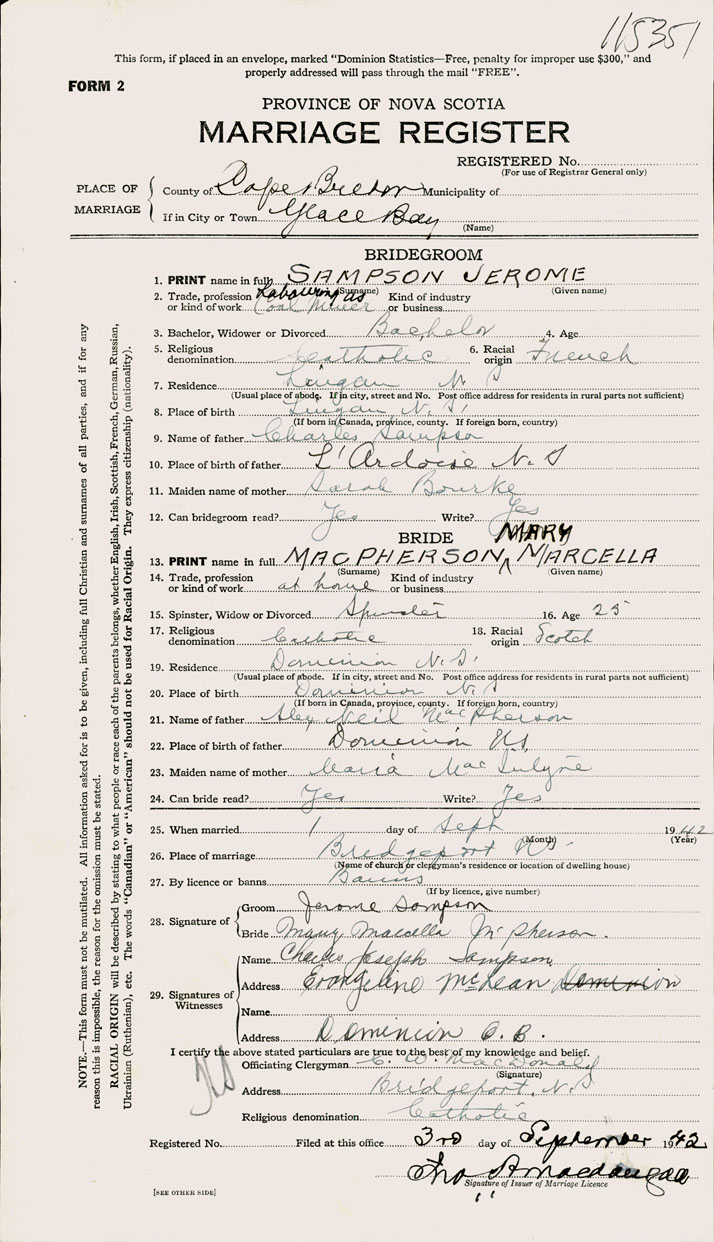 115351
This form, if placed in an envelope, marked "Dominion Statistics—Free, penalty for improper use $300," and
properly addressed will pass through the mail "FREE".
FORM 2
PROVINCE OF NOVA SCOTIA
MARRIAGE REGISTER
REGISTERED No.
(For use of Registrar General only)
PLACE OF MARRIAGE
County of Cape Breton Municipality of
If in City or Town Glace Bay
(Name)
BRIDEGROOM
1. PRINT name in full SAMPSON JEROME
(Surname) (Given name)
2. Trade, profession or kind of work Coal Miner Kind of industry or business
3. Bachelor, Widower or Divorced Bachelor 4. Age
5. Religious denomination Catholic 6. Racial origin French
7. Residence Lingan N S
(Usual place of abode. If in city, street and No. Post office address for residents in rural parts not sufficient)
8. Place of birth Lingan N. S.
(If born in Canada, province, county. If foreign born, country)
9. Name of father Charles Sampson
10. Place of birth of father L'Ardoise N. S
11. Maiden name of mother Sarah Bourke
12. Can bridegroom read? Yes Write? Yes
BRIDE MARY
13. PRINT name in full MACPHERSON, MARCELLA
(Surname) (Given name)
14. Trade, profession or kind of work at home Kind of industry or business
15. Spinster, Widow or Divorced Spinster 16. Age 25
17. Religious denomination Catholic 18. Racial origin Scotch
19. Residence Dominion N. S.
(Usual place of abode. If in city, street and No. Post office address for residents in rural parts not sufficient)
20. Place of birth Dominion N. S
(If born in Canada, province, county. If foreign born, country)
21. Name of father Alex Neil MacPherson
22. Place of birth of father Dominion NS,
23. Maiden name of mother Maria Mac
24. Can bride read? Yes Write? Yes
25. When married 1 day of Sept 1942
(Month) (Year)
26. Place of marriage Bridgeport NS
(Name of church or clergyman's residence or location of dwelling house)
27. By licence or banns Banns
(If by licence, give number)
28. Signature of
Groom Jerome Sampson
Bride Mary Marcella McPherson.
29. Signatures of Witnesses
Name Charles Joseph Sampson
Address Evangeline McLean Dominion
Name
Address Dominion C. B.
I certify the above stated particulars are true to the best of my knowledge and belief.
Officiating Clergyman C. W. MacDonald
(Signature)
Address Bridgeport, N. S
Religious denomination Catholic
Registered No. Filed at this office 3rd day of September 1942
Signature of Issuer of Marriage Licence
[SEE OTHER SIDE]
NOTE.—This form must not be mutilated. All information asked for is to be given, including full Christian and surnames of all parties, and if for any
reason this is impossible, the reason for the omission must be stated.
RACIAL ORIGIN will be described by stating to what people or race each of the parents belongs, whether English, Irish, Scottish, French, German, Russian,
Ukrainian (Ruthenian), etc. The words "Canadian" or "American" should not be used for Racial Origin. They express citizenship (nationality).